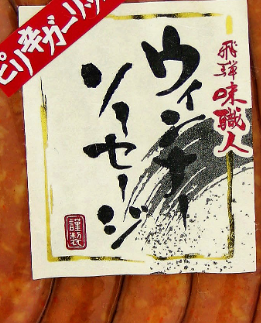 ピリ辛ガーリック
飛騨
味職人
ウィンナー
ソーセージ
謹製